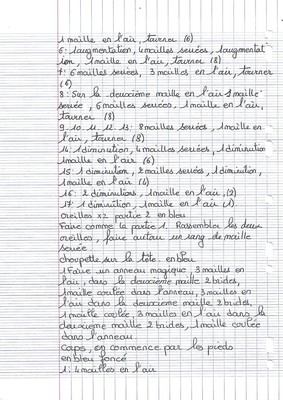 1 maille en l'air, tourner (6)
6: 1 augmentation, 4 mailles serrées, 1 augmentat
ion, 1 maille en l'air, tourner (8)
7: 6 mailles serrées, 3 mailles en l'air, tourner
(6)
8: Sur la deuxième maille en l'air 1 maille
serrée, 6 mailles serrées, 1 maille en l'air,
tourner (8)
9. 10. 11. 12. 13: 8 mailles serrées, 1 maille en
l'air, tourner (8)
14: 1 diminution, 4 mailles serrées, 1 diminution
1 maille en l'air (6)
15: 1 diminution, 2 mailles serrées, 1 diminution,
1 maille en l'air (4)
16: 2 diminutions, 1 maille en l'air, (2)
17: 1 diminution, 1 maille en l'air (1).
oreilles x2 partie 2 en bleu
Faire comme la partie 1. Rassembler les deux
oreilles, faire autour un rang de maille
serrée
choupette sur la tête. en bleu
1 Faire un anneau magique, 3 mailles en
l'air, dans la deuxième maille 2 brides,
1 maille coulée dans l'anneau, 3 mailles en
l'air dans la deuxième maille 2 brides,
1 maille coulée, 3 mailles en l'air dans la
deuxième maille 2 brides, 1 maille coulée
dans l'anneau
Corps, on commence par les pieds
en bleu foncé
1: 4 mailles en l'air